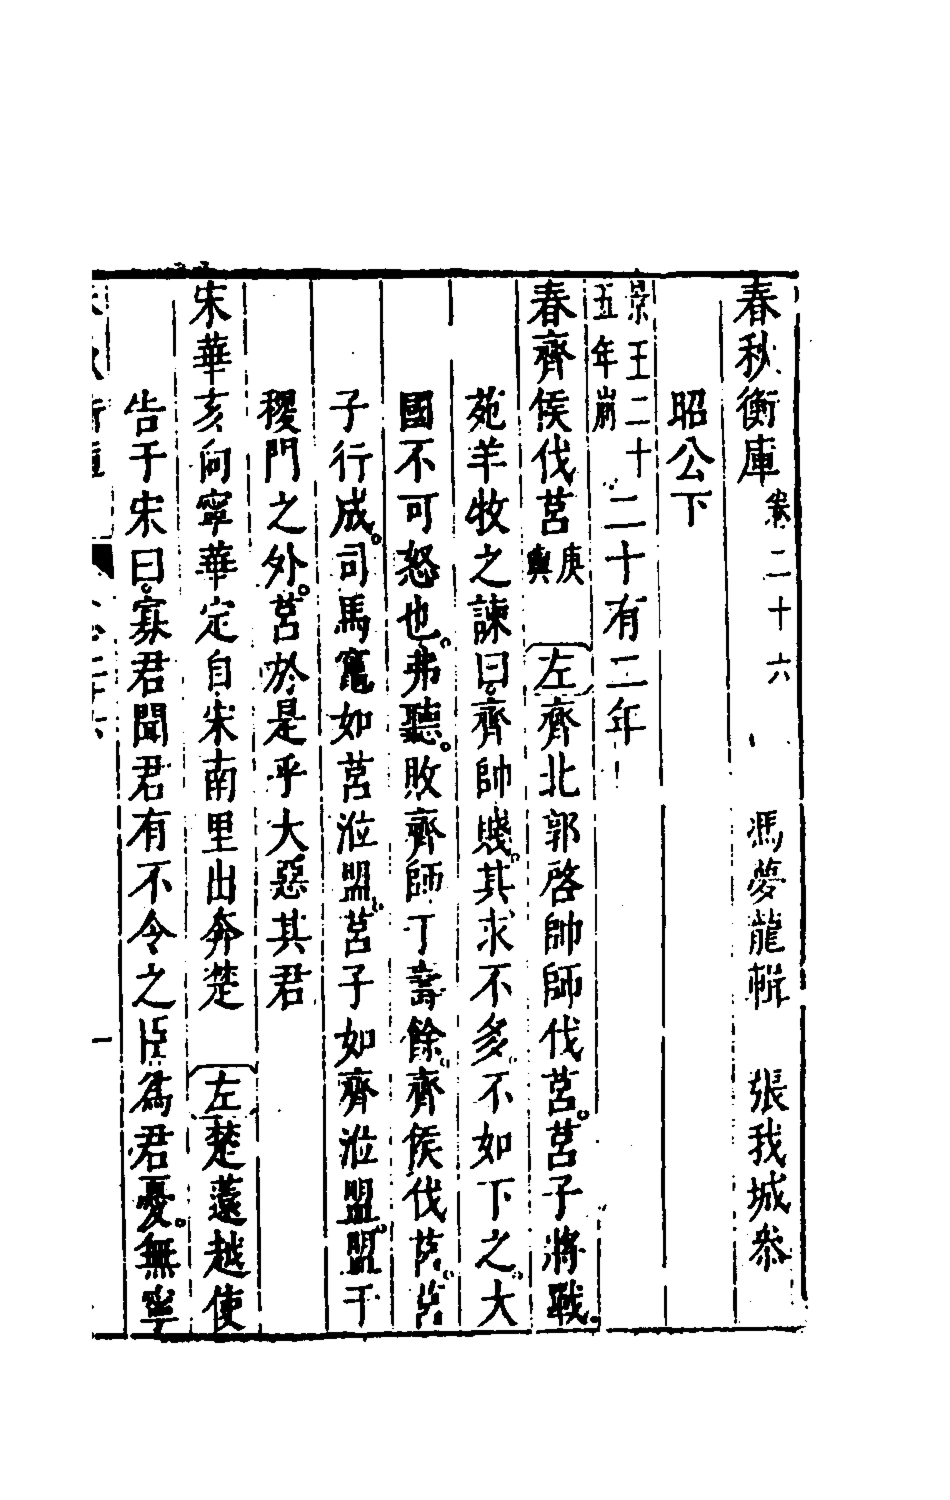 春秋衡庫 卷二十六 馮夢龍輯 張我城叅
昭公下
景王二十五年崩 二十有二年
春齊侯伐莒庚輿 左 齊北郭啓帥師伐莒。莒子將戰。
苑羊牧之諫曰。齊帥賤。其求不多。不如下之。大
國不可怒也。弗聽。敗齊師丁壽餘。齊侯伐莒。莒
子行成。司馬竈如莒涖盟。莒子如齊涖盟。盟于
稷門之外。莒於是乎大惡其君
宋華亥向寧華定自宋南里出奔楚 左 楚薳越使
告于宋曰。寡君聞君有不令之臣爲君憂。無寧